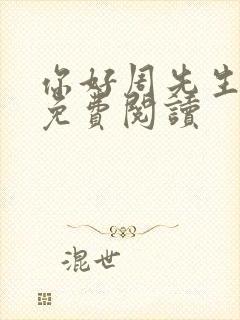 你好周先生
免費閱讀
混世